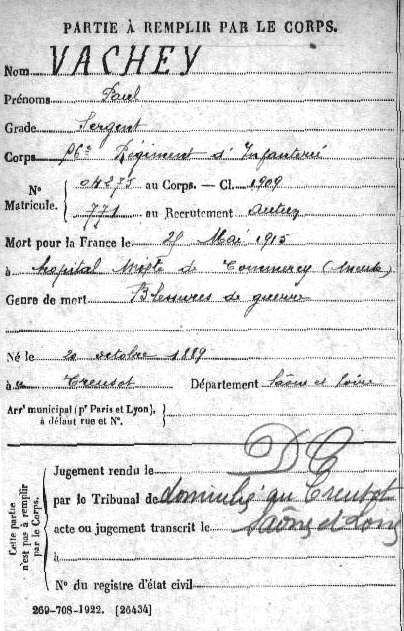 PARTIE À REMPLIR PAR LE CORPS.
Nom VACHEY
Prénoms Paul
Grade Sergent
Corps Régiment d'Infanterie
N° Matricule. 04275 au Corps. — Cl. 1909
771 au Recrutement Autun
Mort pour la France le 29 Mai 1915
à hopital Mixte de Commercy (Meuse)
Genre de mort Blessures de guerre
Né le 20 octobre 1889
à Creusot Département Saône et Loire
Arrt municipal (pr Paris et Lyon),
à défaut rue et N°.
Cette partie n'est pas à remplir par le Corps.
Jugement rendu le
par le Tribunal de domicilié au Creusot
acte ou jugement transcrit le Saône et Loire
à
N° du registre d'état civil
269-708-1922. [26434]